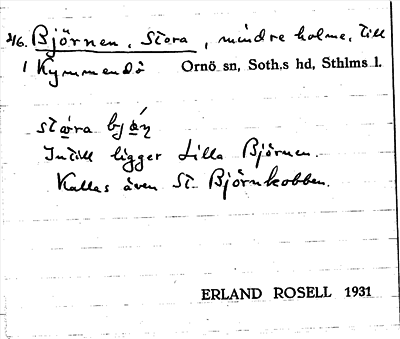 2/6. Björnen, Stora, mindre holme, till
1 Kymmendö Ornö sn, Soth.s hd, Sthlms l.
Intill ligger Lilla Björnen.
Kallas även St. Björnkobben.
ERLAND ROSELL 1931